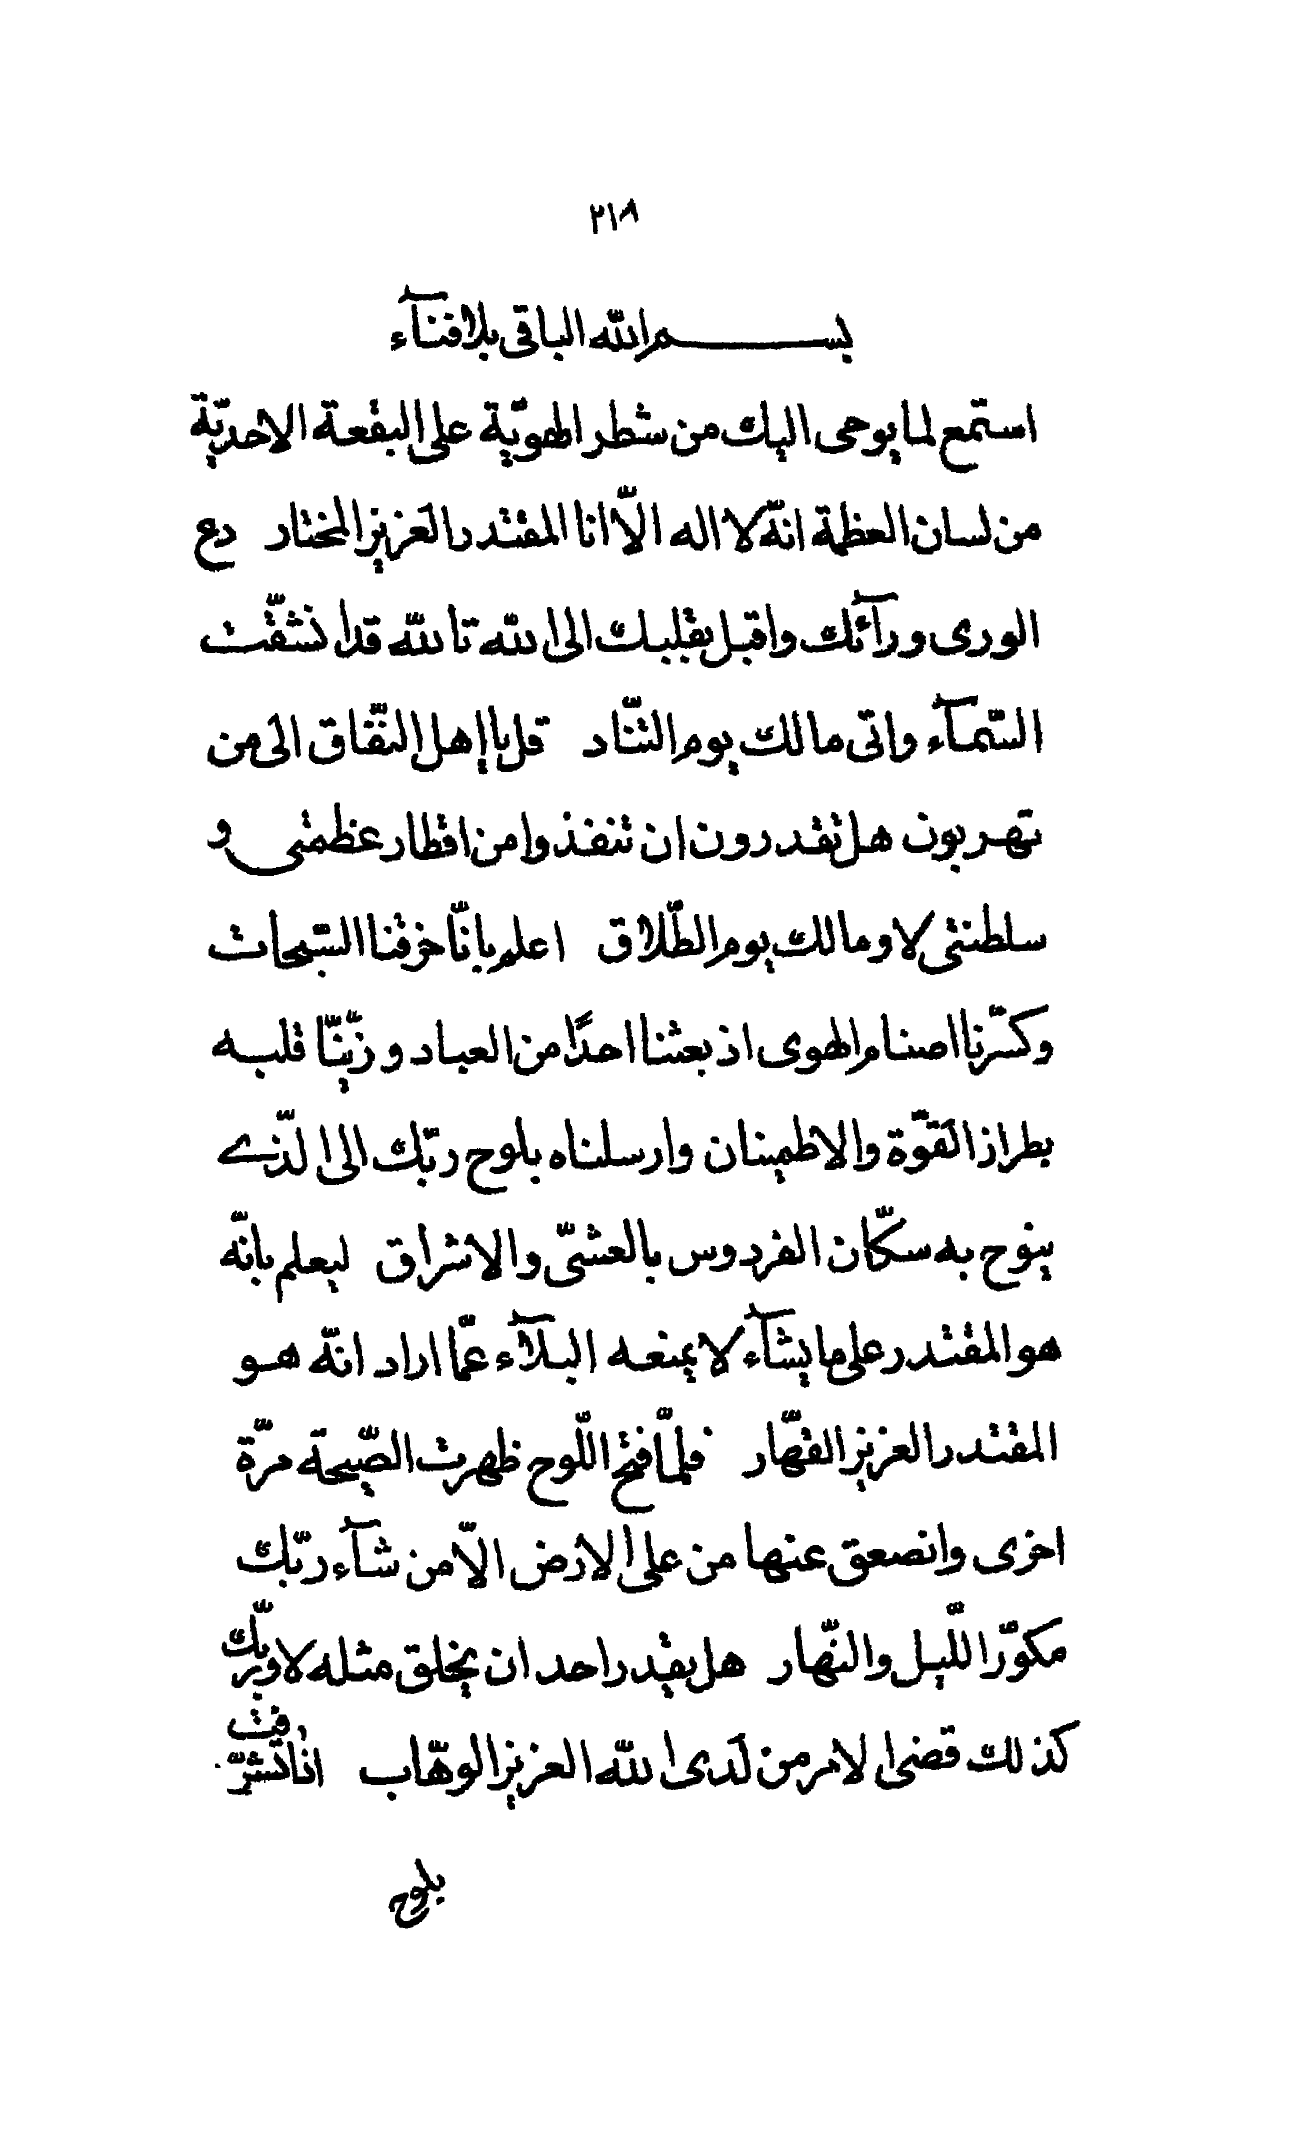 ٢١٨
بسم الله الباقی بلا فنآء
استمع لما یوحی الیک من شطر الهویّة علی البقعة الاحدیّة
من لسان العظمة انّه لا اله الّا انا المقتدر العزیز المختار دع
الوری ورآئک واقبل بقلبک الی الله تالله قد انشقّت
السّمآء واتی مالک یوم التّناد قل یا اهل النّفاق الی من
تهربون هل تقدرون ان تنفذوا من اقطار عظمتی و
سلطنتی لا ومالک یوم الطّلاق اعلم بانّا خرقنا السّبحات
وکسّرنا اصنام الهوی اذ بعثنا احدًا من العباد و زیّنّا قلبه
بطراز القوّة والاطمینان وارسلناه بلوح ربّک الی الّذی
ینوح به سکّان الفردوس بالعشیّ والاشراق لیعلم بانّه
هو المقتدر علی ما یشآء لا یمنعه البلآء عمّا اراد انّه هو
المقتدر العزیز القهّار فلمّا فتح اللّوح ظهرت الصّیحة مرّة
اخری وانصعق عنها من علی الارض الّا من شآء ربّک
مکوّر اللّیل والنّهار هل یقدر احد ان یخلق مثله لا وربّک
کذلک قضی الامر من لدی الله العزیز الوهّاب انّا تشرّفت
بلوح